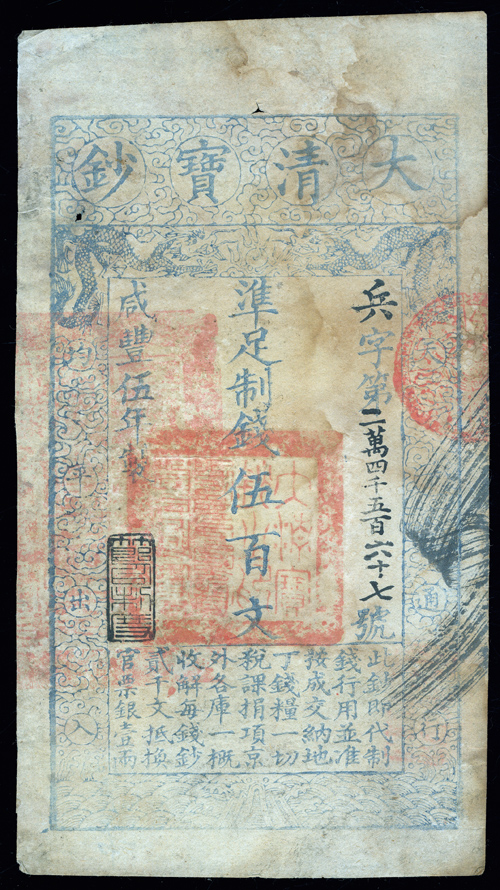 大清寶鈔
天
通行
均平出入
兵字第二萬四千五百六十七號
準足制錢伍百文
咸豐伍年製
此鈔即代制
錢行用並准
按成交納地
丁錢糧一切
稅課捐項京
外各庫一概
收解每錢鈔
貳千文抵換
官票銀壹兩